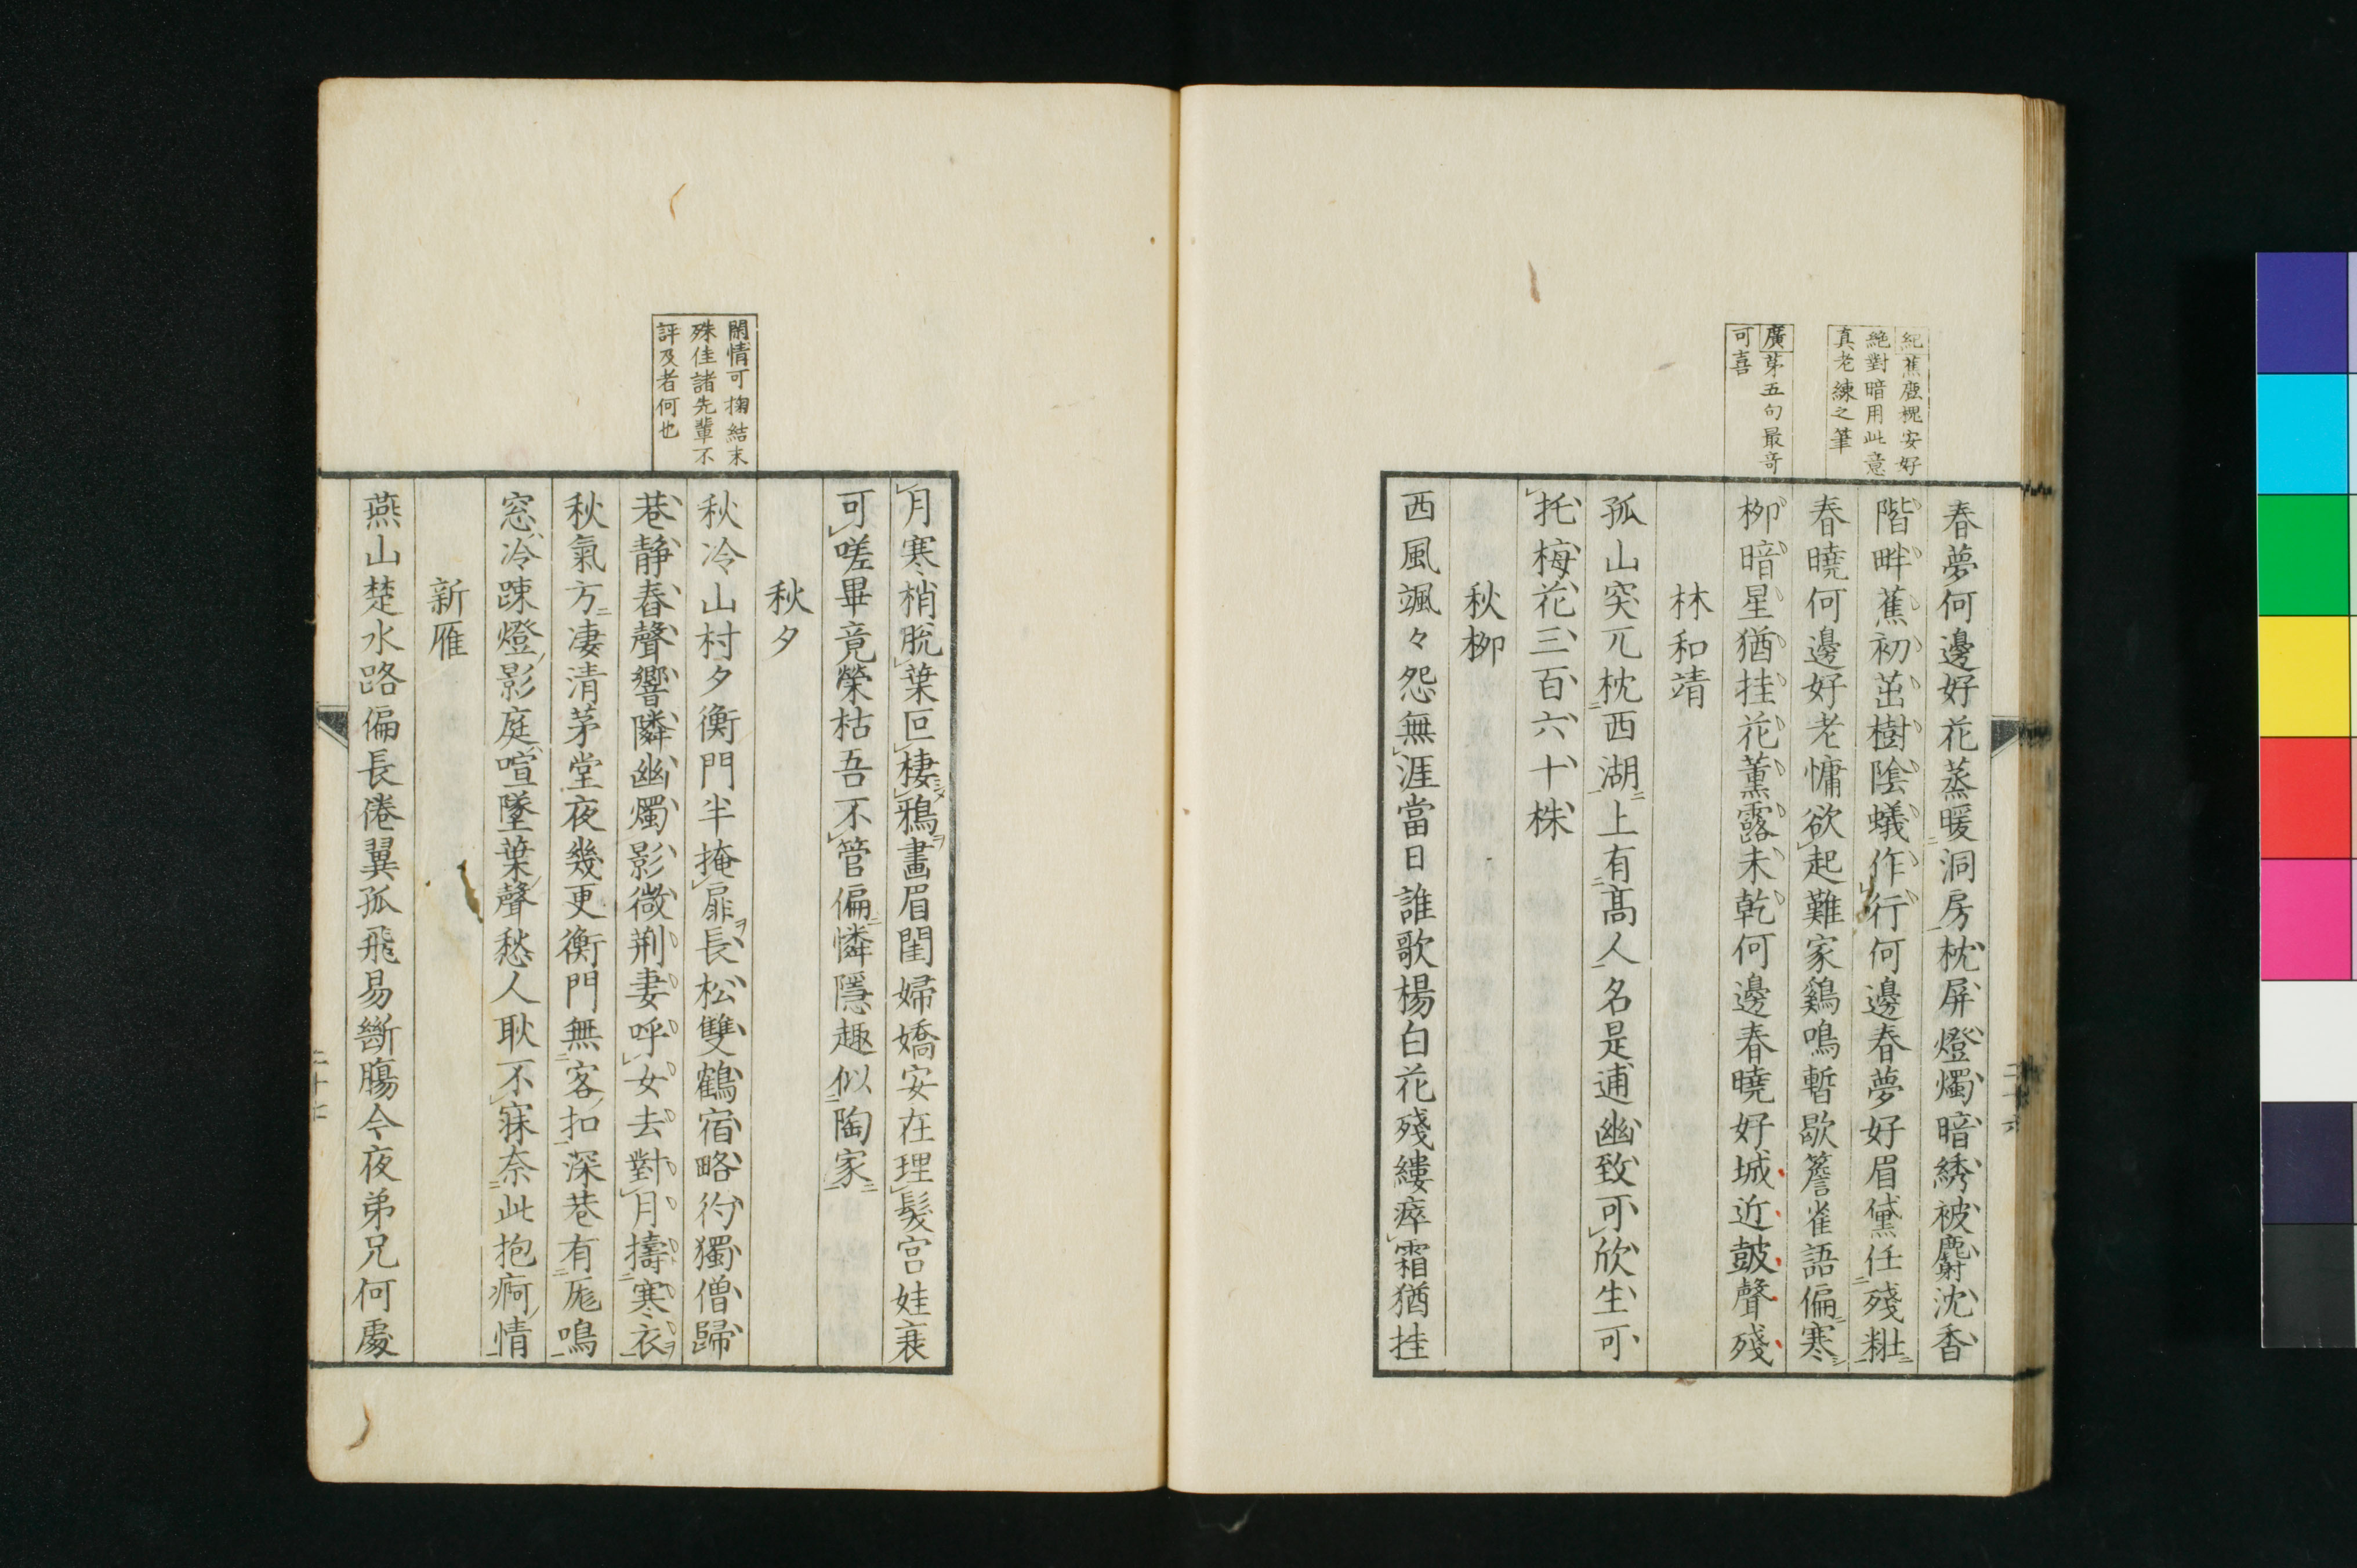 紀蕉鹿槐安好
絶對暗用此意
真老練之筆
廣第五句最竒
可喜
春夢何邊好花蒸暖洞房枕屏燈燭暗綉被麝沈香
階畔蕉初茁樹陰蟻作行何邊春夢好眉黛任殘粧
春曉何邊好老慵欲起難家鷄鳴暫歇簷雀語偏寒
栁暗星猶挂花薫露未乾何邊春曉好城近皷聲殘
林和靖
孤山突兀枕西湖上有髙人名是逋幽致可欣生可
托梅花三百六十株
秋栁
西風颯々怨無涯當日誰歌楊白花殘縷瘁霜猶挂
二十六
閑情可掬結末
殊佳諸先輩不
評及者何也
月寒梢脱葉叵棲鴉畫眉閨婦嬌安在理髮宮娃衰
可嗟畢竟榮枯吾不管偏憐隱趣似陶家
秋夕
秋冷山村夕衡門半掩扉長松雙鶴宿略彴獨僧歸
巷静舂聲響隣幽燭影微荆妻呼女去對月擣寒衣
秋氣方凄清茅堂夜幾更衡門無客扣深巷有尨鳴
窓冷踈燈影庭喧墜葉聲愁人耿不寐奈此抱痾情
新雁
燕山楚水路偏長倦翼孤飛易斷膓今夜弟兄何處
二十七